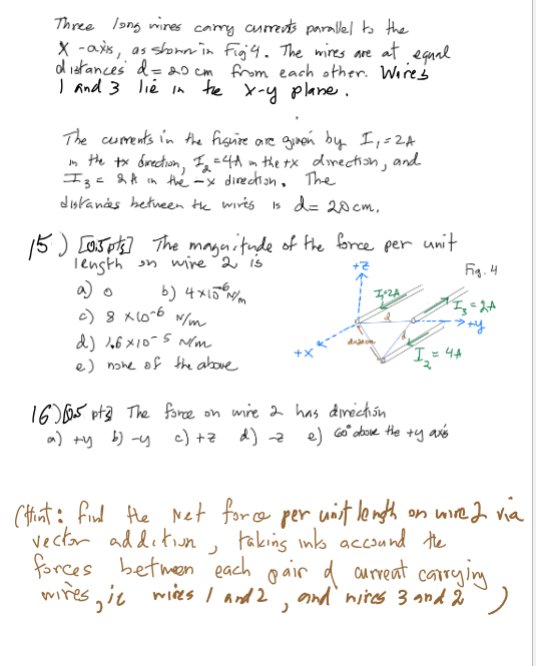 Three long wires carry currents parallel to the
X-axis, as shown in Fig 4. The wires are at equal
distances d = 20 cm from each other. Wires
1 and 3 lie in the x-y plane.
The currents in the figure are given by I₁=2A
in the +x direction, I₂=4A in the +x direction, and
I₃= 2A in the -x direction. The
distances between the wires is d= 20cm.
15) [0.5 pts] The magnitude of the force per unit
length on wire 2 is
a) 0 b) 4×10⁻⁶ N/m
c) 8 ×10⁻⁶ N/m
d) 1.6 ×10⁻⁵ N/m
e) none of the above
+z
Fig. 4
I₁=2A
I₃=2A
d
+y
d=20cm
d
+x
I₂= 4A
16) [0.5 pts] The force on wire 2 has direction
a) +y b) -y c) +z d) -z e) 60° above the +y axis
(Hint: find the Net force per unit length on wire 2 via
vector addition, taking into accound the
forces between each pair of current carrying
wires, ie wires 1 and 2, and wires 3 and 2)